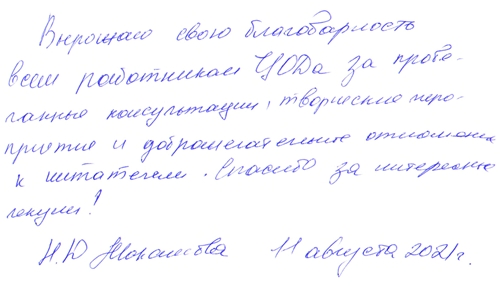 Выражаю свою благодарность
всем работникам ЦОДа за прове-
данные консультации, творческие меро-
приятия и доброжелательные отношения
к читателям. Спасибо за интересные
лекции!
Н.Ю 11 августа 2021г.